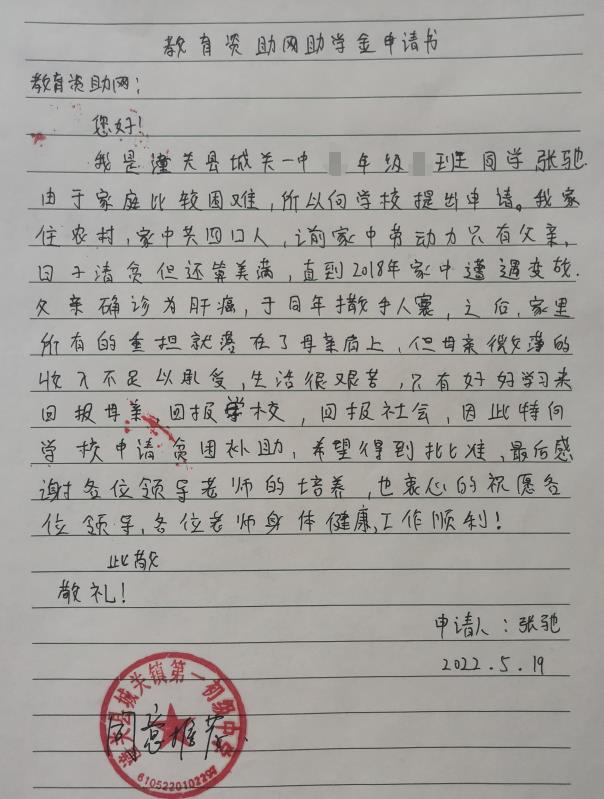 教育资助网助学金申请书
教育资助网：
您好！
我是潼关县城关一中 年级 班同学张驰
由于家庭比较困难，所以向学校提出申请。我家
住农村，家中共四口人，以前家中劳动力只有父亲，
日子清贫但还算美满，直到2018年家中遭遇变故.
父亲确诊为肝癌，于同年撒手人寰，之后，家里
所有的重担就落在了母亲肩上，但母亲微薄的
收入不足以承受，生活很艰苦，只有好好学习来
回报母亲，回报学校，回报社会，因此特向
学校申请贫困补助，希望得到批准，最后感
谢各位领导老师的培养，也衷心的祝愿各
位领导，各位老师身体健康，工作顺利！
此敬
敬礼！
申请人：张驰
2022.5.19
潼关县城关镇第一初级中学
同意推荐.